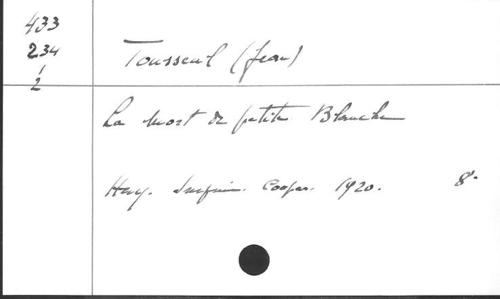 433
234
1
2
Tousseul (Jean)
La mort de petite Blanche
Huy. Imprim. Cooper. 1920. 8°